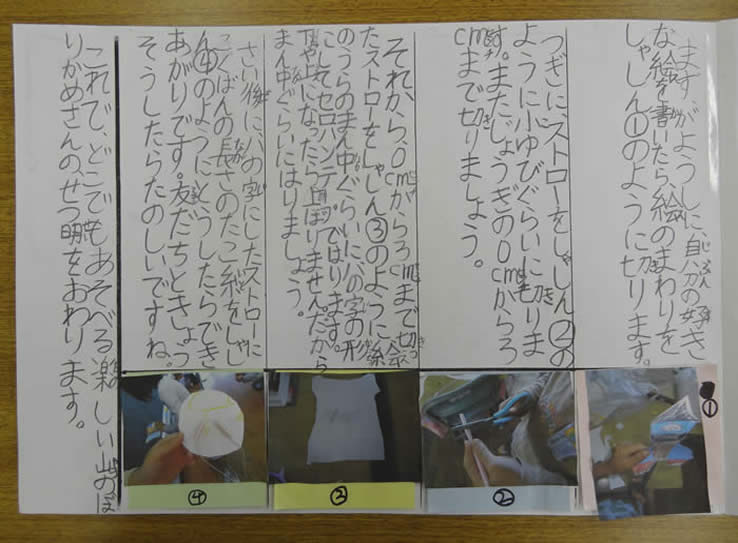 まず、がようしに、自分の好き
な絵を書いたら、絵のまわりを
しゃしん①のように切ります。
つぎに、ストローをしゃしん②の
ように小ゆびぐらいに切りま
す。またじょうぎの0cmから3
cmまで切りましょう。
それから、0cmから3cmまで切っ
たストローをしゃしん③のように絵
のうらのまん中ぐらいに八の字の形
にしてセロハンテープではります。
下や上になったら上ぼりませんだから
まん中ぐらいにはりましょう。
さい後に、八の字にしたストローに
こくばんの長さのたこ糸をしゃし
ん④のようにとうしたらでき
あがりです。友だちときょう
そうしたらたのしいですね。
これで、どこでもあそべる楽しい山のぼ
りかめさんの、せつ明をおわります。
①
②
③
④